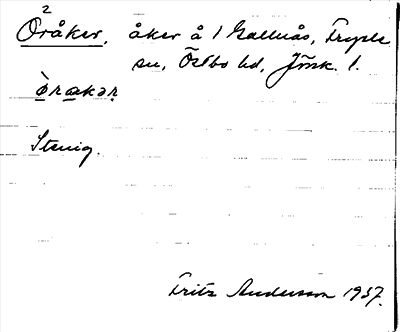 2
Öråker, åker å 1 Gallnäs, Fryele
sn, Östbo hd, Jönk. l.
ò̤rakər
Stenig.
Fritz Andersson 1937.